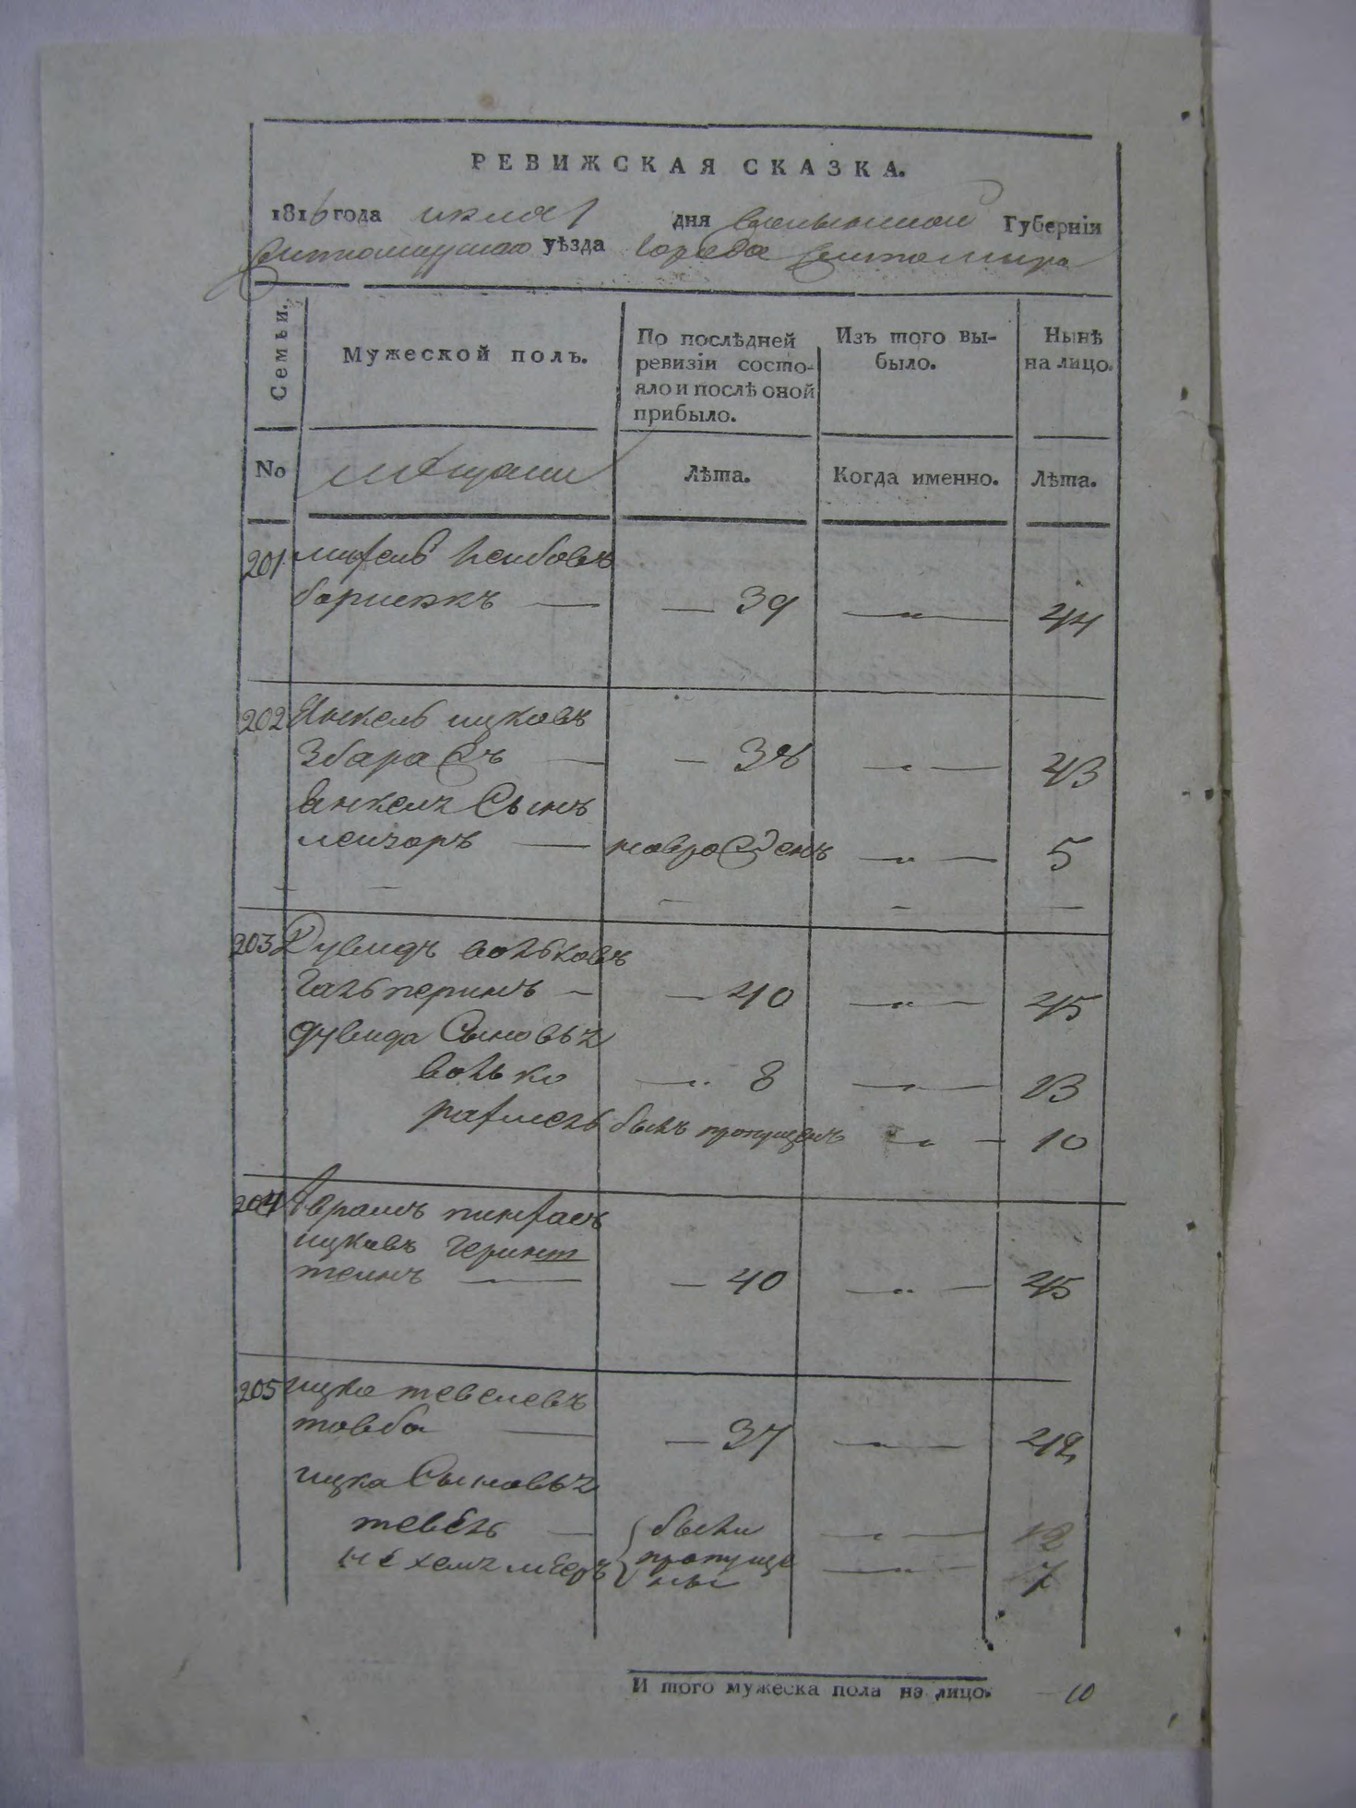 РЕВИЖСКАЯ СКАЗКА.
1816 года июля 1 дня Волынской Губерніи
Житомирскаго уѣзда города Житомира
Семьи.
Мужеской полъ.
По послѣдней ревизіи состояло и послѣ оной прибыло.
Изъ того выбыло.
Нынѣ на лицо.
№ мѣщани Лѣта. Когда именно. Лѣта.
201
барискъ — — 39 —„— 44
202 Янкель ицковъ
Збаражъ — — 38 —„— 43
Янкеля Сынъ
лейзоръ — новорожденъ —„— 5
203 Дувидъ волковъ
Гальперинъ — — 40 —„— 45
дувида Сыновья
волько —„ 8 —„— 13
рахмель былъ пропущенъ „ — 10
204 Аврамъ пинхасъ
ицковъ геринш
теинъ — — 40 —„— 45
205 ицко тевелевъ
товба — — 37 —„— 42
ицка Сыновья
тевель — были —„— 12
нехемя мееръ пропуще —„— 7
ны
И того мужеска пола на лицо. — 10